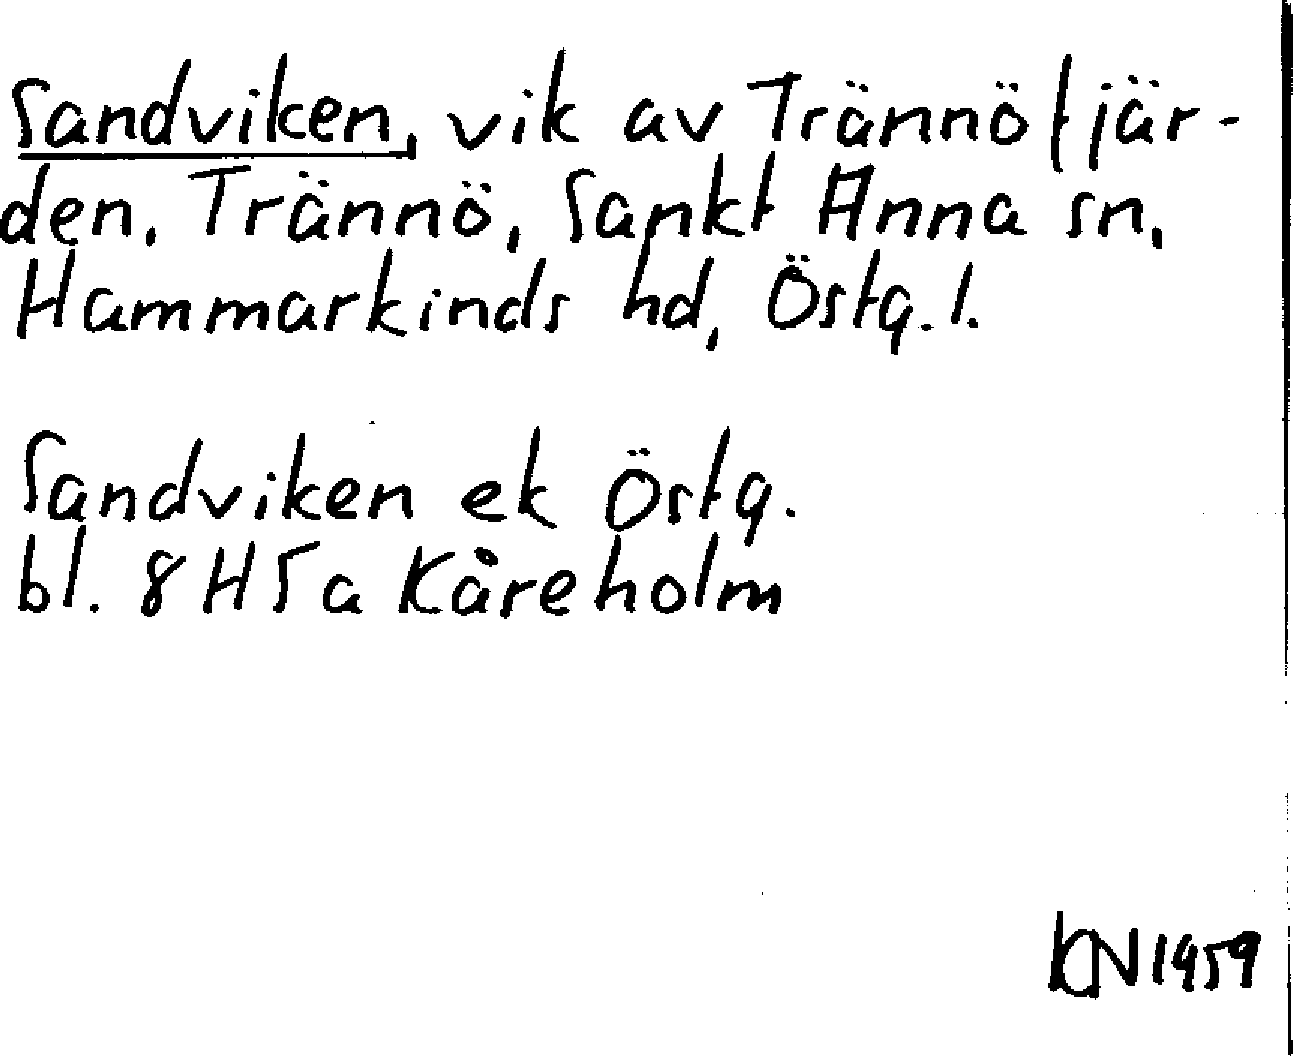 Sandviken, vik av Trännöfjär-
den, Trännö, Sankt Anna sn,
Hammarkinds hd, Östg. l.
Sandviken ek Östg.
bl. 8 H 5 a Kåreholm
KN 1959